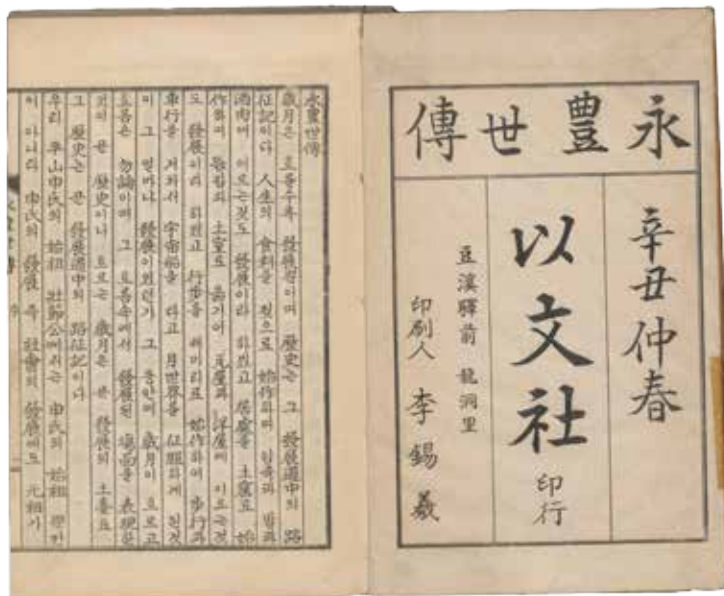 永豊世傳
辛丑仲春
以文社 印行
豆溪驛前 龍洞里
印刷人 李錫羲
永豊世傳
歲月은 흐를수록 發展됨이며 歷史는 그 發展道中의 路
征記이다 人生의 食料를 젖으로 始作하며 과 밥과
酒肉에 이르는것도 發展이라 하겠고 居處를 土窟로 始
作하여 움집과 土室로 옮기어 瓦屋과 洋屋에 이르는것
도 發展이라 하겠고 行步를 始作하여 步行과
車行을 거쳐서 宇宙船을 타고 月世界를 征服하게 된것
이 그 얼마나 發展이었던가 그 동안에 歲月이 흐르고
흐름은 勿論이며 그 흐름속에서 發展된 場面을 表現한
것이 곧 歷史이니 흐르는 歲月은 곧 發展의 土臺요
그 歷史는 곧 發展道中의 路征記이다
우리 平山申氏의 始祖 壯節公께서는 申氏의 始祖 뿐만
이 아니라 申氏의 發展 즉 社會의 發展에도 元祖가